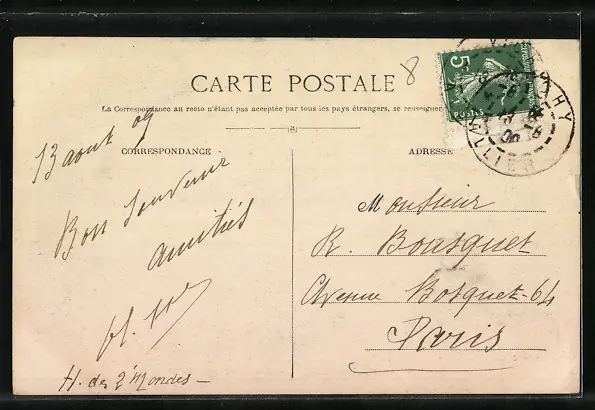 CARTE POSTALE
La Correspondance au recto n'étant pas acceptée par tous les pays étrangers, se renseigner
CORRESPONDANCE
ADRESSE
13 aout 09
Bon Souvenir
amitiés
H. des 2 Mondes
Monsieur
R. Bousquet
Avenue Bosquet-64
Paris
5c
POSTES
ALLIER